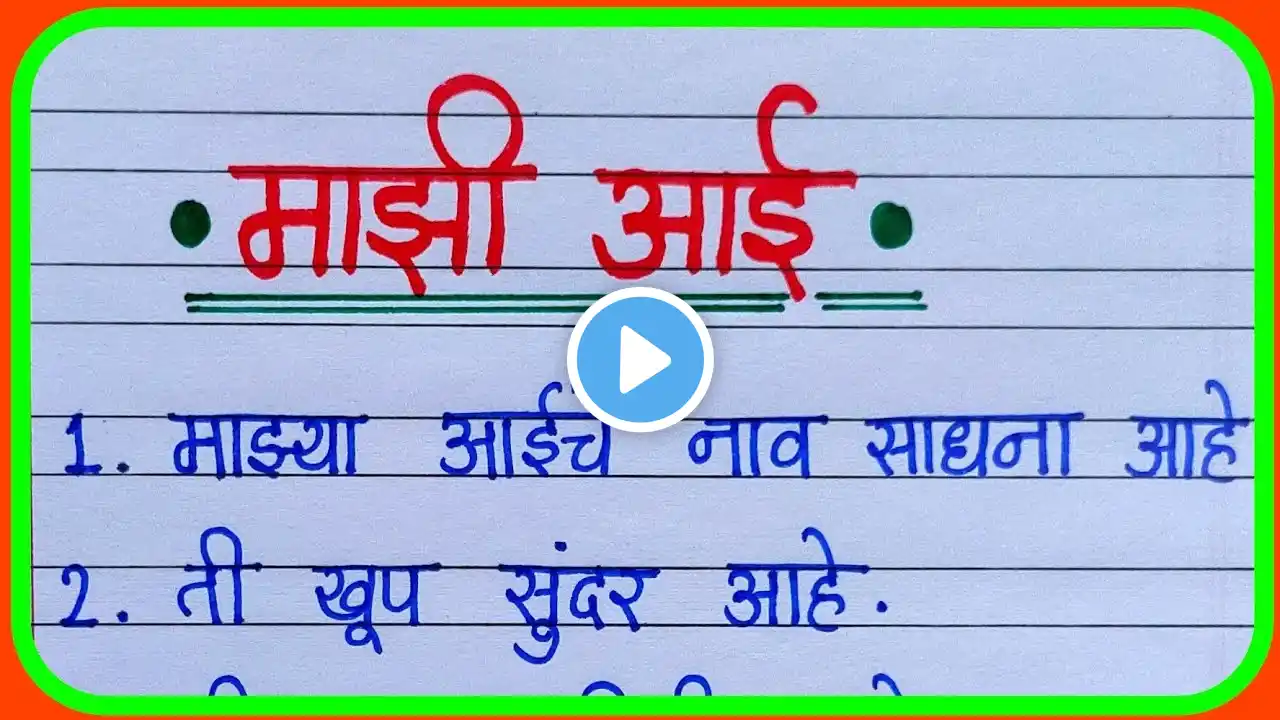 माझी आई
1. माझ्या आईचे नाव साधना आहे
2. ती खूप सुंदर आहे.